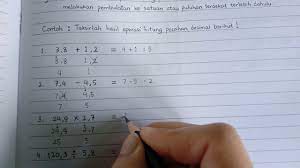 melakukan pembulatan ke satuan atau puluhan terdekat terlebih dahulu.
Contoh : Taksirlah hasil operasi hitung pecahan desimal berikut !
1. 3,8 + 1,2 = 4 + 1 = 5
3,8 1,2
4 1
2. 7,4 - 4,5 = 7 - 5 = 2
7,4 4,5
7 5
3. 24,9 × 2,7 =
24,9 2,7
25 3
4 120,3 ÷ 5,8